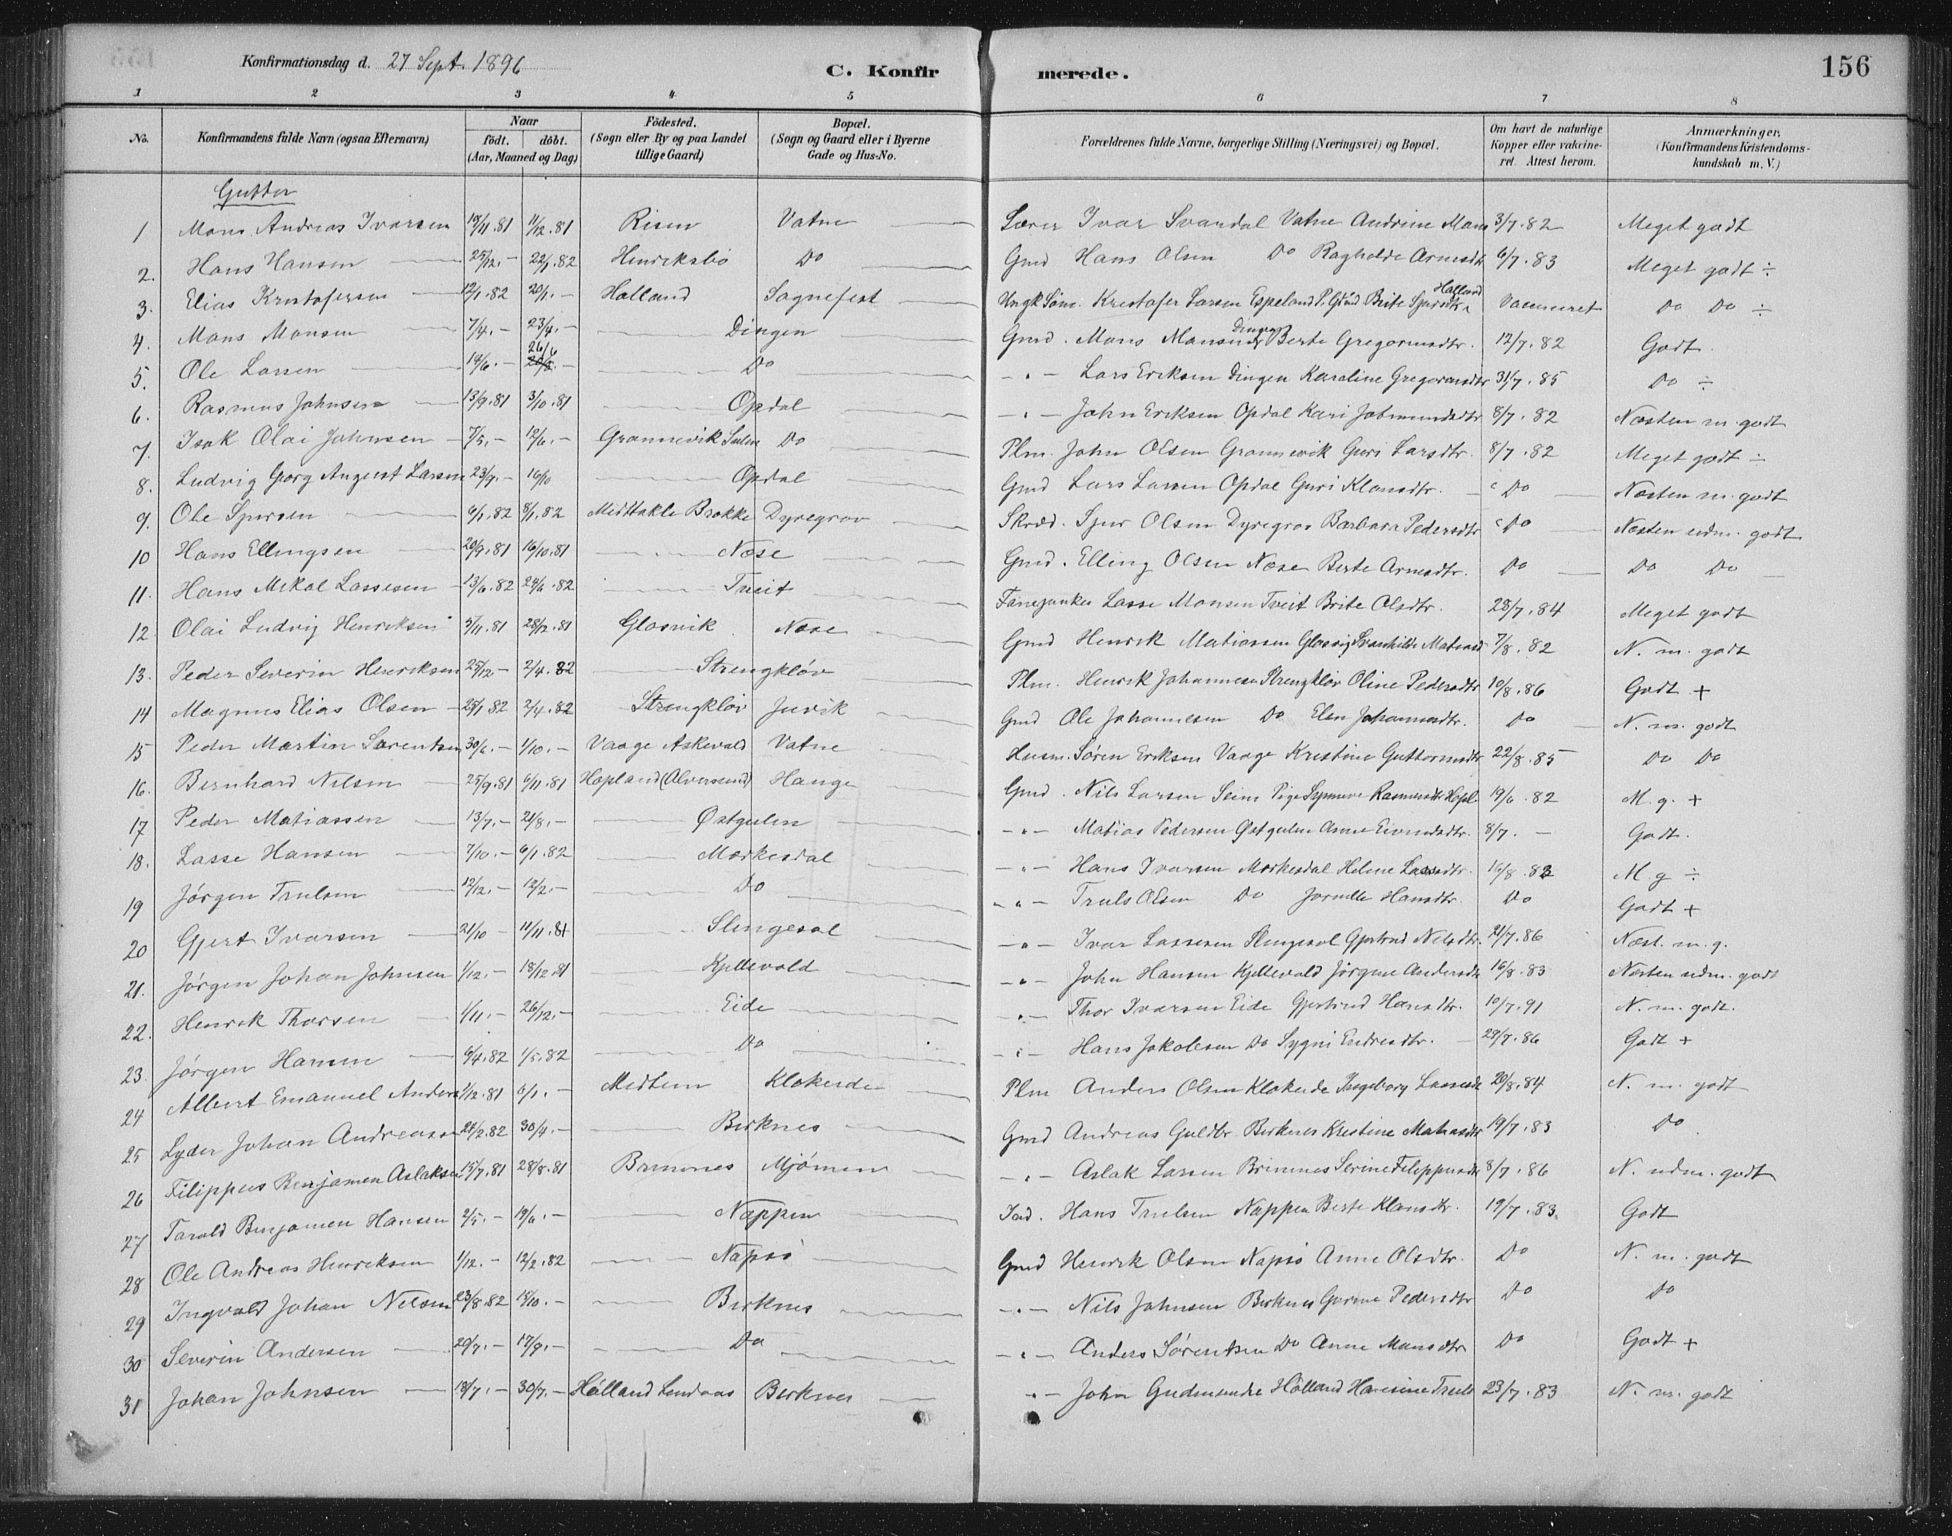 Konfirmationsdag d. 27 Sept. 1896
C. Konfirmerede.
156
1 2 3 4 5 6 7 8
No. Konfirmandens fulde Navn (ogsaa Efternavn) Naar født. døbt. (Aar, Maaned og Dag) Fødested. (Sogn eller By og paa Landet tillige Gaard) Bopæl. (Sogn og Gaard eller i Byerne Gade og Hus-No. Forældrenes fulde Navne, borgerlige Stilling (Næringsvei) og Bopæl. Om havt de naturlige Kopper eller vakcineret. Attest herom. Anmærkninger, (Konfirmandens Kristendomskundskab m. V.)
Gutter
1 Mons Andreas Ivarsen 18/11.81 11/12.81 Risen Vatne Lærer Ivar Svandal Vatne Andrine Mons 3/7.82 Meget godt
2. Hans Hansen 25/12.- 22/1.82 Henriksbø Do Gmd Hans Olsen Do Raghilde Arnesdtr 6/7.83 Meget godt ÷
3. Elias Kristofersen 12/1.82 20/1.- Halland Sognefest Ungk. Søm. Kristofer Larsen Espeland P. Brite Sjursdtr. Halland Vaccineret Do Do ÷
4. Mons Monsen 7/4.- 23/4.- Dingen Gmd. Mons Monsen Dingen Berte Gregoriusdtr. 12/7.82 Godt.
5. Ole Larsen 14/6.- 26/6 Do -"- Lars Eriksen Dingen Karoline Gregoriusdtr 31/7.85 Do ÷
6. Rasmus Johnsen 13/9.81 3/10.81 Opdal -"- John Eriksen Opdal Kari Jetmundsdtr 8/7.82 Næsten m. godt
7. Isak Olai Johnsen 7/5.- 12/6.- Grønnevik Do Plm. John Olsen Grønnevik Guri Larsdtr. 8/7.82 Meget godt ÷
8. Ludvig Georg August Larsen 23/7.- 16/10 Opdal Gmd Lars Larsen Opdal Guri Klausdtr. Do Næsten m. godt
9. Ole Sjursen 6/1.82 8/1.82 Midttakle Brekke Dyregrov Skræd. Sjur Olsen Dyregrov Barbara Pedersdtr Do Næsten udm. godt
10 Hans Ellingsen 20/9.81 16/10.81 Næse Gmd. Elling Olsen Næse Berte Arnesdtr. Do Do Do
11. Hans Mikal Lassesen 13/6.82 24/6.82 Tveit Fanejunker Lasse Monsen Tveit Brite Olsdtr. 28/7.84 Meget godt
12. Olai Ludvig Henriksen 3/11.81 28/12.81 Glosvik Næse Gmd Henrik Matiassen Glosvig Svanhilde Matiasd 7/8.82 N. m. godt
13. Peder Severin Henriksen 25/12- 2/4.82 Strengkløv Plm. Henrik Johannesen Strengkløv Oline Pedersdtr 10/8.86 Godt +
14 Magnus Elias Olsen 28/1.82 2/4.82 Strengkløv Juvik Gmd Ole Johannesen Do Elen Johannesdtr. Do N. m. godt
15 Peder Martin Sørentsen 30/6.- 1/10.- Vaage Askevold Vatne Husm. Søren Eriksen Vaage Kristine Guttormsdtr 22/8.85 Do Do
16. Bernhard Nilsen 25/9.81 6/11.81 Hopland (Alversund) Hauge Gmd. Nils Larsen Seim Pige Synneve Rasmusdtr Hopl 19/6.82 M. g. +
17 Peder Matiassen 13/7.- 21/8.- Østgulen -"- Matias Pedersen Østgulen Anne Eivindsdtr. 8/7.- Godt.
18. Lasse Hansen 7/10.- 6/1.82 Morkesdal -"- Hans Ivarsen Morkesdal Helene Lassedtr. 16/8.82 M. g ÷
19 Jørgen Trulsen 12/12.- 12/2.- Do -"- Truls Olsen Do Jorette Hansdtr. Do Godt +
20 Gjert Ivarsen 21/10 - 11/11.81 Slengesol -"- Ivar Lassesen Slengesol Gjertrud Nilsdtr. 21/7.86 Næst. m. g.
21. Jørgen Johan Johnsen 1/12.- 18/12.81 Kjellevold -"- John Hansen Kjellevold Jørgine Andersdtr 16/8.83 Næsten udm. godt
22. Henrik Thorsen 1/11.- 26/12.- Eide -"- Thor Ivarsen Eide Gjertrud Hansdtr. 10/7.91 N. m. godt.
23. Jørgen Hansen 6/4.82 1/5.82 Do -"- Hans Jakobsen Do Sygni Endresdtr. 29/7.86 Godt +
24 Albert Emanuel Anders 1/12.81 6/1.- Midtun Klokeide Plm Anders Olsen Klokeide Ingeborg Lassesdtr 20/8.84 N. m. godt
25 Lyder Johan Andreassen 24/2.82 30/4.- Birknes Gmd Andreas Guldbr. Birknes Kristine Matiasdtr 19/7.83 Do
26 Filippus Benjamen Aslaksen 15/7.81 28/8.81 Brimnes Mjømen -"- Aslak Larsen Brimnes Serine Filippusdtr 8/7.86 N. udm. godt
27 Tarald Benjamen Hansen 2/5.- 19/6.- Nappen Ind. Hans Trulsen Nappen Berte Klausdtr. 19/7.83. Godt
28 Ole Andreas Henriksen 1/12.- 12/2.82 Napsø Gmd Henrik Olsen Napsø Anne Olsdtr. Do N. m. godt
29 Ingvald Johan Nilsen 23/8.82 15/10.- Birknes -"- Nils Johnsen Birknes Gurine Pedersdtr Do Do
30 Severin Andersen 29/7.- 17/9.- Do -"- Anders Sørentsen Do Anne Monsdtr Do Godt +
31 Johan Johnsen 13/7.- 30/7.- Hålland Lindaas Birknes "- John Gudmundse Hålland Hansine Truls 23/7.83 N. m. godt